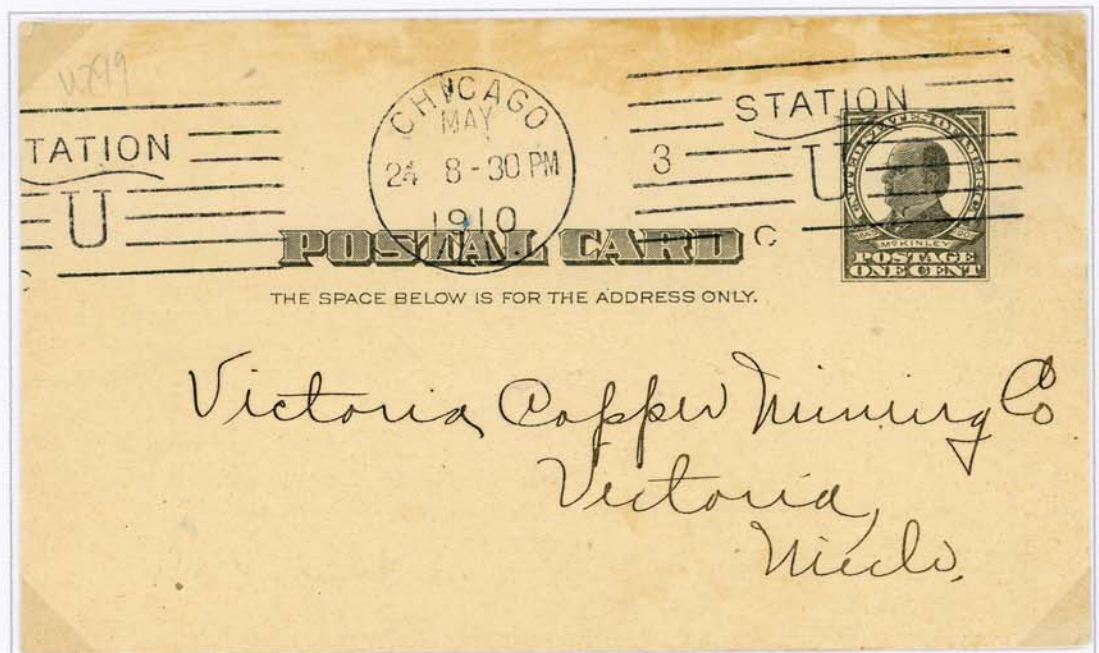 STATION
U
CHICAGO
MAY
24 8-30 PM
1910
3
STATION
U
C
UNITED STATES OF AMERICA
McKINLEY
POSTAGE
ONE CENT
POSTAL CARD
THE SPACE BELOW IS FOR THE ADDRESS ONLY.
Victoria Copper Mining Co
Victoria,
Mich.